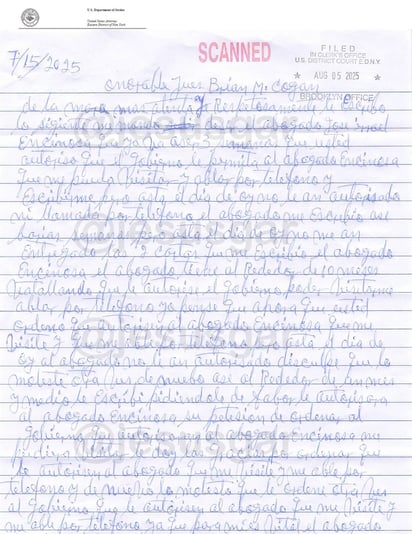 U.S. Department of Justice
United States Attorney
Eastern District of New York
7/15/2025
SCANNED
FILED
IN CLERK'S OFFICE
U.S. DISTRICT COURT E.D.N.Y.
★ AUG 05 2025 ★
BROOKLYN OFFICE
onorable Juez Brian M. Cogan
de la mera mas atenta y Respetuosamente le Escribo
lo siguiente mi nombre del abogado Jose Israel
Encinosa ya ase 3 semanas que usted
autoriso que el Gobierno le permita al abogado Encinosa
que me pueda Visitar y ablar por telefono y
Escribirme pero asta el dia de oy no le an autorisado
ni llamada por telefono el abogado me Escribio ase
barias semanas pero asta el dia de oy no me an
Entregado las 2 cartas que me Escribio el abogado
Encinosa el abogado tiene al Rededor de 10 meses
batallando que le autorise el Gobierno poder Visitarme
ablar por telefono yo pense que ahora que usted
ordeno que autorisen al abogado Encinosa que me
Visite y que me able por telefono pero asta el dia de
oy al abogado no le an autorisado disculpe que lo
moleste otra ves de nuebo ase al Rededor de un mes
y medio le Escribi pidiendole de fabor le autorisara
al abogado Encinosa su petision de ordenar al
Gobierno que autorisara al abogado Encinosa me
pudiera Visitar le doy las gracias por ordenar que
le autorisen al abogado que me Visite y me able por
telefono y de nuebo lo molesto que le ordene otra ves
al Gobierno que le autorisen al abogado que me Visite y
me able por telefono ya que para mi es Vital el abogado
@jesusgar